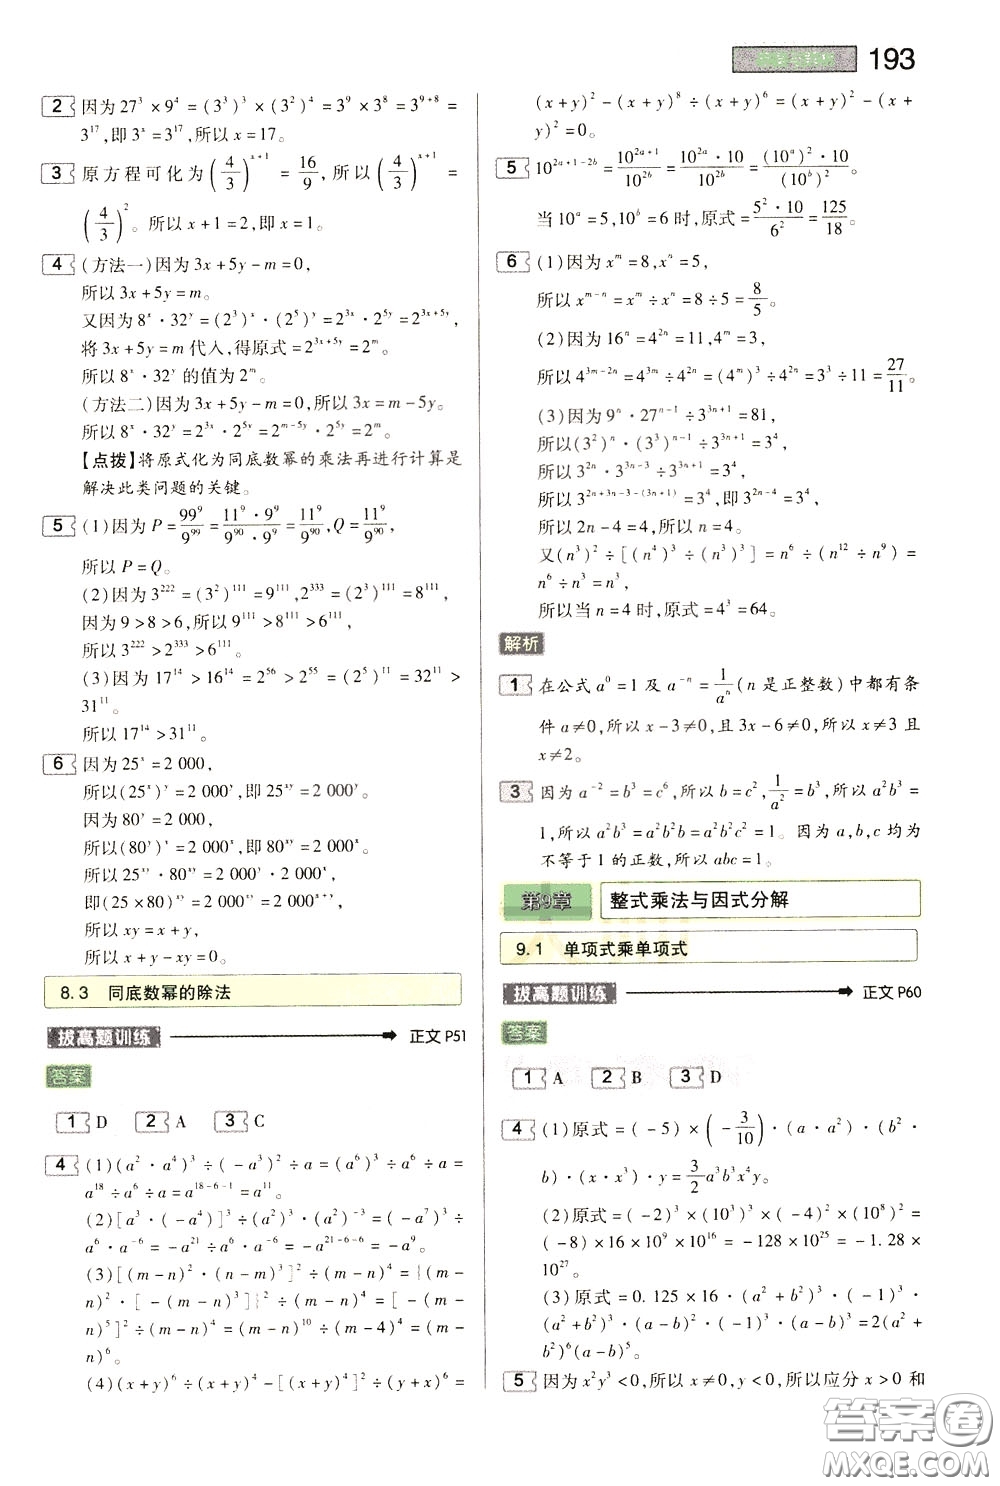 193
2 因为27³×9⁴=(3³)³×(3²)⁴=3⁹×3⁸=3⁹⁺⁸=
3¹⁷,即3ˣ=3¹⁷,所以x=17。
3 原方程可化为(4/3)ˣ⁺¹=16/9,所以(4/3)ˣ⁺¹=
(4/3)²。所以x+1=2,即x=1。
4 (方法一)因为3x+5y-m=0,
所以3x+5y=m。
又因为8ˣ·32ʸ=(2³)ˣ·(2⁵)ʸ=2³ˣ·2⁵ʸ=2³ˣ⁺⁵ʸ,
将3x+5y=m代入,得原式=2³ˣ⁺⁵ʸ=2ᵐ。
所以8ˣ·32ʸ的值为2ᵐ。
(方法二)因为3x+5y-m=0,所以3x=m-5y。
所以8ˣ·32ʸ=2³ˣ·2⁵ʸ=2ᵐ⁻⁵ʸ·2⁵ʸ=2ᵐ。
【点拨】将原式化为同底数幂的乘法再进行计算是
解决此类问题的关键。
5 (1)因为P=99⁹/9⁹⁹=11⁹·9⁹/9⁹⁰·9⁹=11⁹/9⁹⁰,Q=11⁹/9⁹⁰,
所以P=Q。
(2)因为3²²²=(3²)¹¹¹=9¹¹¹,2³³³=(2³)¹¹¹=8¹¹¹,
因为9>8>6,所以9¹¹¹>8¹¹¹>6¹¹¹,
所以3²²²>2³³³>6¹¹¹。
(3)因为17¹⁴>16¹⁴=2⁵⁶>2⁵⁵=(2⁵)¹¹=32¹¹>
31¹¹。
所以17¹⁴>31¹¹。
6 因为25ˣ=2 000,
所以(25ˣ)ʸ=2 000ʸ,即25ˣʸ=2 000ʸ。
因为80ʸ=2 000,
所以(80ʸ)ˣ=2 000ˣ,即80ˣʸ=2 000ˣ。
所以25ˣʸ·80ˣʸ=2 000ʸ·2 000ˣ,
即(25×80)ˣʸ=2 000ˣʸ=2 000ˣ⁺ʸ,
所以xy=x+y,
所以x+y-xy=0。
8.3 同底数幂的除法
拔高题训练 正文P51
答案
1 D 2 A 3 C
4 (1)(a²·a⁴)³÷(-a³)²÷a=(a⁶)³÷a⁶÷a=
a¹⁸÷a⁶÷a=a¹⁸⁻⁶⁻¹=a¹¹。
(2)[a³·(-a⁴)]³÷(a²)³·(a²)⁻³=(-a⁷)³÷
a⁶·a⁻⁶=-a²¹÷a⁶·a⁻⁶=-a²¹⁻⁶⁻⁶=-a⁹。
(3)[(m-n)²·(n-m)³]²÷(m-n)⁴={(m-
n)²·[-(m-n)³]}²÷(m-n)⁴=[-(m-
n)⁵]²÷(m-n)⁴=(m-n)¹⁰÷(m-n)⁴=(m-
n)⁶。
(4)(x+y)⁶÷(x+y)⁴-[(x+y)⁴]²÷(y+x)⁶=
(x+y)²-(x+y)⁸÷(x+y)⁶=(x+y)²-(x+
y)²=0。
5 10²ᵃ⁺¹⁻²ᵇ=10²ᵃ⁺¹/10²ᵇ=10²ᵃ·10/10²ᵇ=(10ᵃ)²·10/(10ᵇ)²。
当10ᵃ=5,10ᵇ=6时,原式=5²·10/6²=125/18。
6 (1)因为xᵐ=8,xⁿ=5,
所以xᵐ⁻ⁿ=xᵐ÷xⁿ=8÷5=8/5。
(2)因为16ⁿ=4²ⁿ=11,4ᵐ=3,
所以4³ᵐ⁻²ⁿ=4³ᵐ÷4²ⁿ=(4ᵐ)³÷4²ⁿ=3³÷11=27/11。
(3)因为9ⁿ·27ⁿ⁻¹÷3³ⁿ⁺¹=81,
所以(3²)ⁿ·(3³)ⁿ⁻¹÷3³ⁿ⁺¹=3⁴,
所以3²ⁿ·3³ⁿ⁻³÷3³ⁿ⁺¹=3⁴,
所以3²ⁿ⁺³ⁿ⁻³⁻⁽³ⁿ⁺¹⁾=3⁴,即3²ⁿ⁻⁴=3⁴,
所以2n-4=4,所以n=4。
又(n³)²÷[(n⁴)³÷(n³)³]=n⁶÷(n¹²÷n⁹)=
n⁶÷n³=n³,
所以当n=4时,原式=4³=64。
解析
1 在公式a⁰=1及a⁻ⁿ=1/aⁿ(n是正整数)中都有条
件a≠0,所以x-3≠0,且3x-6≠0,所以x≠3且
x≠2。
3 因为a⁻²=b³=c⁶,所以b=c²,1/a²=b³,所以a²b³=
1,所以a²b³=a²b²b=a²b²c²=1。因为a,b,c均为
不等于1的正数,所以abc=1。
第9章 整式乘法与因式分解
9.1 单项式乘单项式
拔高题训练 正文P60
答案
1 A 2 B 3 D
4 (1)原式=(-5)×(-3/10)·(a·a²)·(b²·
b)·(x·x³)·y=3/2a³b³x⁴y。
(2)原式=(-2)³×(10³)³×(-4)²×(10⁸)²=
(-8)×16×10⁹×10¹⁶=-128×10²⁵=-1.28×
10²⁷。
(3)原式=0.125×16·(a²+b²)³·(a-b)³·
(a²+b²)³·(a-b)²·(-1)³·(a-b)³=2(a²+
b²)⁶(a-b)⁵。
5 因为x²y³<0,所以x≠0,y<0,所以应分x>0和
答案卷
MXQE.COM